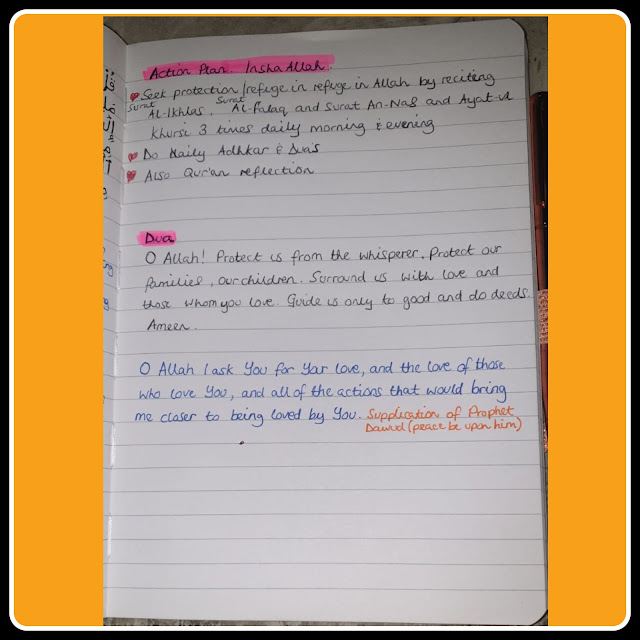 Action Plan. Insha Allah.
Seek protection/refuge in refuge in Allah by reciting
Surat Al-Ikhlas, Surat Al-Falaq and Surat An-Nas and Ayat-ul
Khursi 3 times daily morning & evening
Do Daily Adhkar & Dua's
Also Qur'an reflection
Dua
O Allah! Protect us from the whisperer. Protect our
families, our children. Surround us with love and
those whom you love. Guide us only to good and do deeds.
Ameen.
O Allah I ask You for Your love, and the love of those
who love You, and all of the actions that would bring
me closer to being loved by You. Supplication of Prophet
Dawud (peace be upon him)